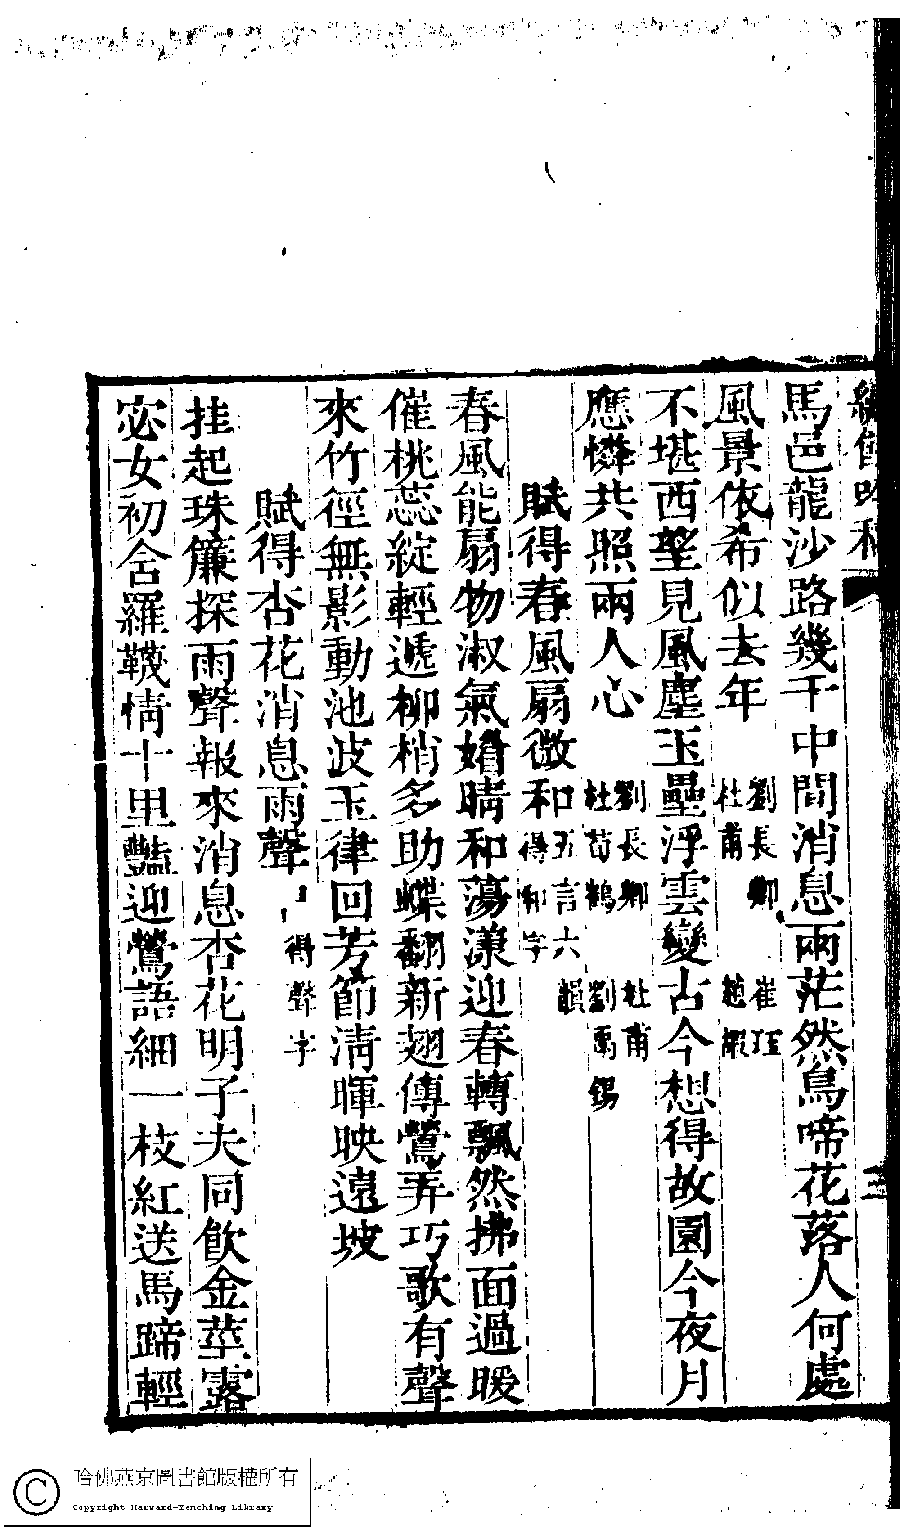 馬邑龍沙路幾千中間消息兩茫然鳥啼花落人何處
風景依希似去年 劉長卿 崔珏 杜甫 趙嘏
不堪西望見風塵玉壘浮雲變古今想得故園今夜月
應憐共照兩人心 劉長卿 杜甫 杜荀鶴 劉禹錫
賦得春風扇微和 五言六韻 得和字
春風能扇物淑氣媚晴和蕩漾迎春轉飄然拂面過暖
催桃蕊綻輕遞柳梢多助蝶翻新翅傳鶯弄巧歌有聲
來竹徑無影動池波玉律回芳節清暉映遠坡
賦得杏花消息雨聲 得聲字
挂起珠簾探雨聲報來消息杏花明子夫同飲金莖露
宓女初含羅韈情十里豔迎鶯語細一枝紅送馬蹄輕
三
哈佛燕京圖書館版權所有
Copyright Harvard-Yenching Library